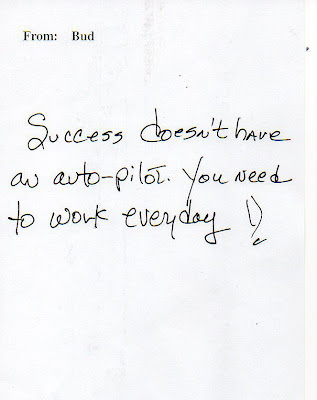 From: Bud
Success doesn't have
an auto-pilot. You need
to work everyday !)